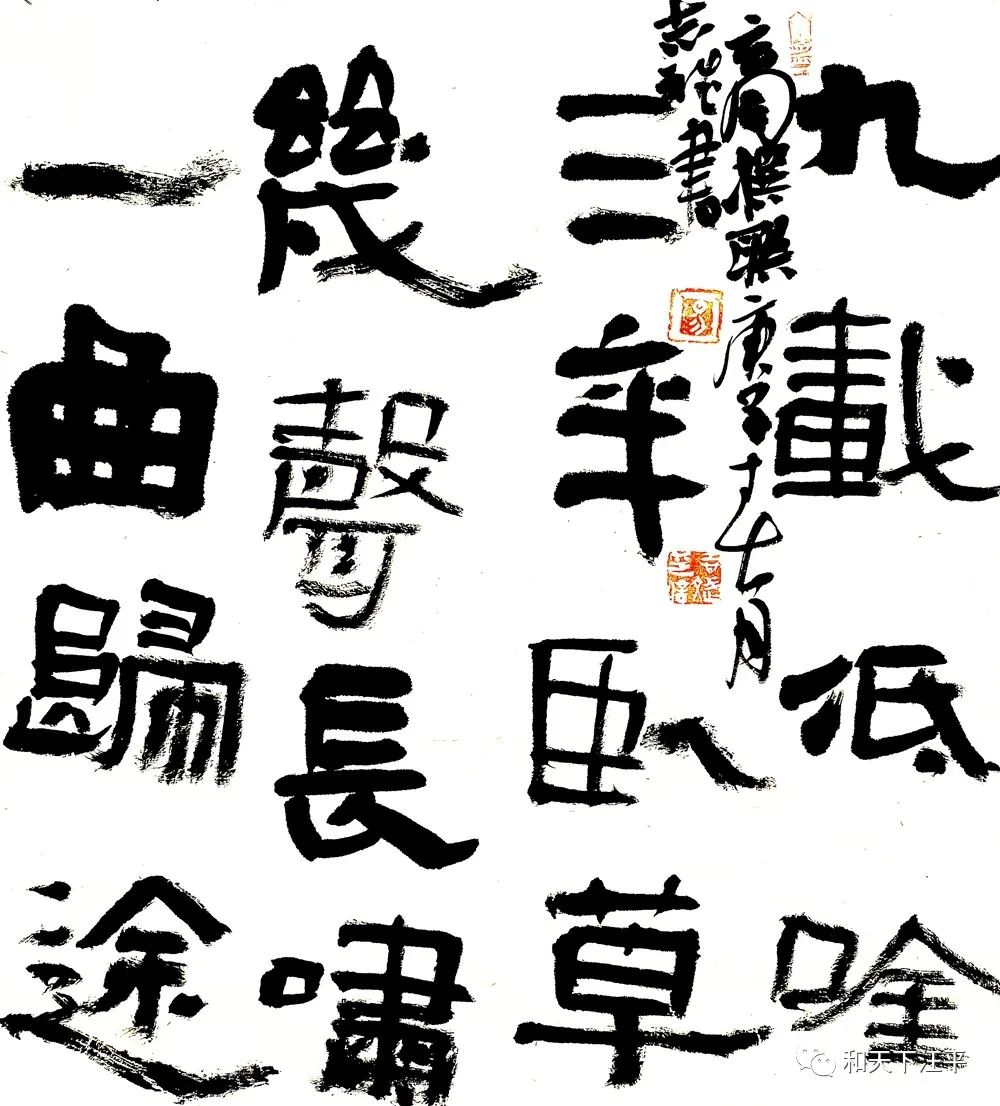 九載低唫
三年臥草
幾聲長嘯
一曲歸途
高周撰聯庚子 月
志 書
和天下汪平